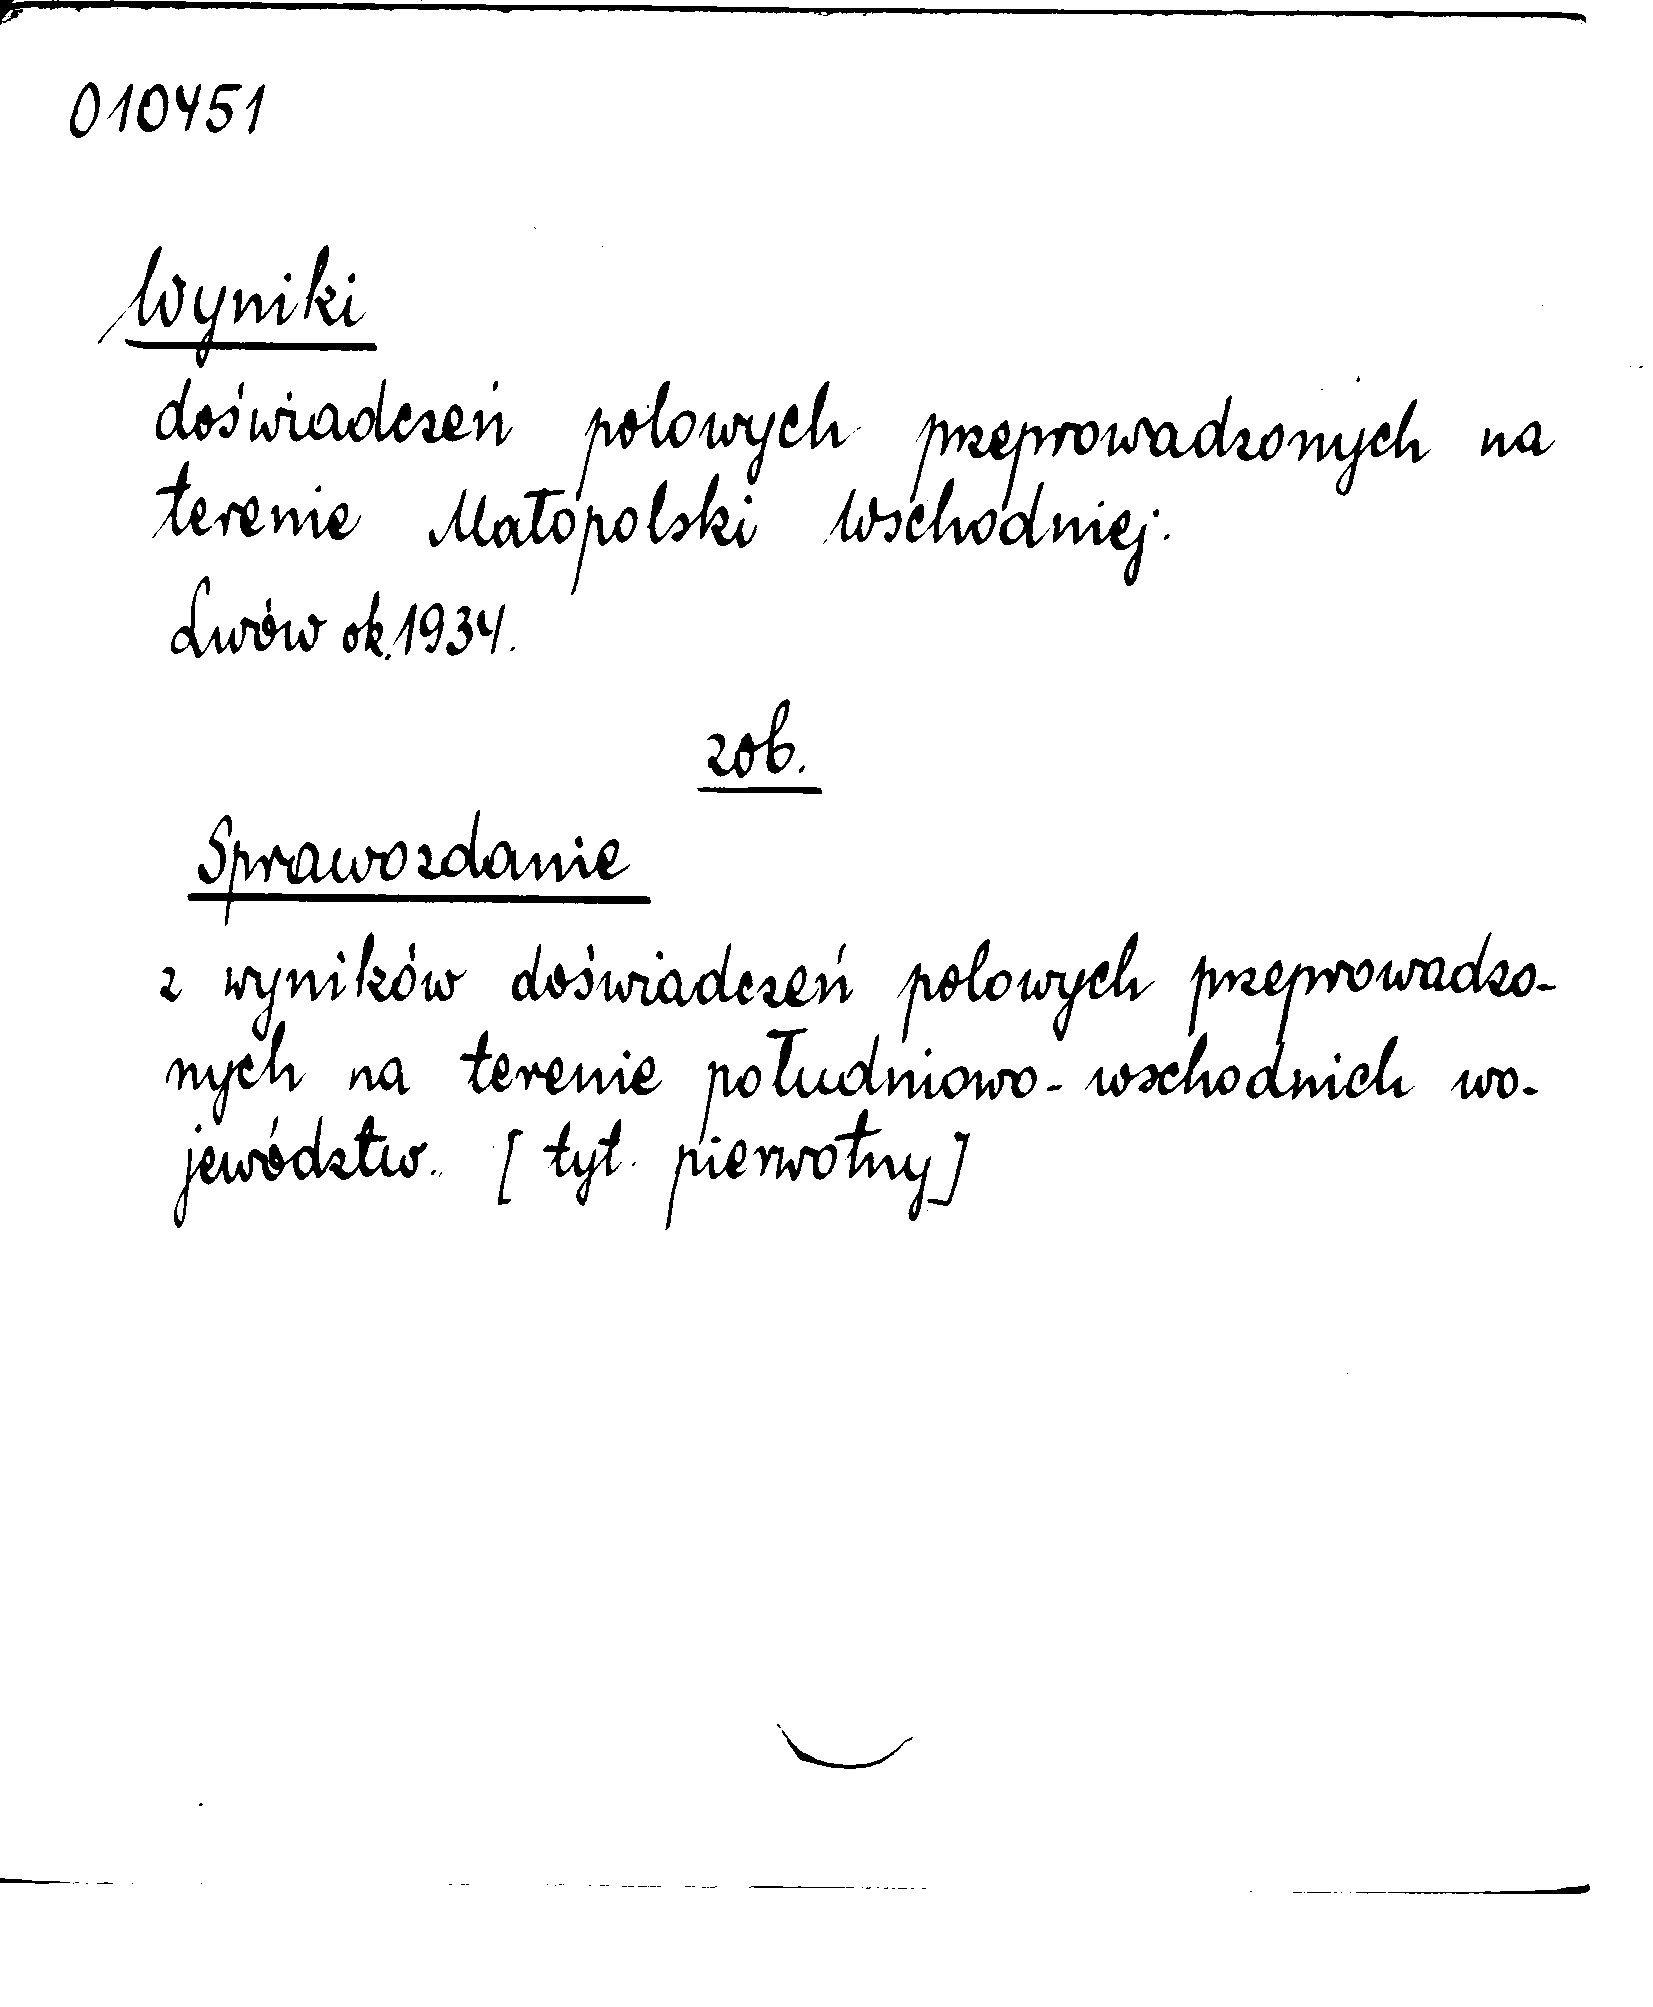 010451
Wyniki
doświadczeń polowych przeprowadzonych na
terenie Małopolski Wschodniej.
Lwów ok. 1934.
zob.
Sprawozdanie
z wyników doświadczeń polowych przeprowadzo-
nych na terenie południowo-wschodnich wo-
jewództw. [tyt. pierwotny]